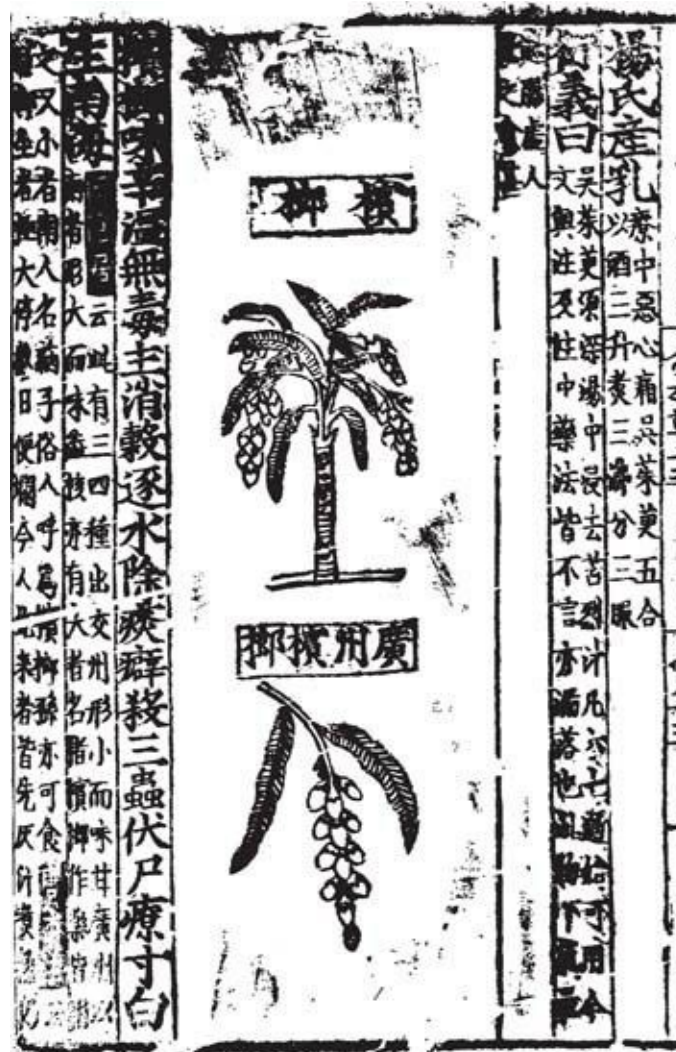 楊氏產乳
療中惡心痛吳茱萸五合
以酒二升煑三沸分三服
衍義曰
吳茱萸須深湯中浸去苦烈汁凡六七過始可用今
文與注及注中藥法皆不言亦漏落也此物下氣最
腸虛人
檳榔
廣州檳榔
檳榔味辛溫無毒主消穀逐水除痰癖殺三蟲伏尸療寸白
生南海
云此有三四種出交州形小而味甘廣州以
南者形大而味澀核亦有大者名豬檳榔作藥皆用
之又小者南人名蒳子俗人呼爲檳榔孫亦可食
生者極大停數日便爛今人北來者皆先灰汁煑